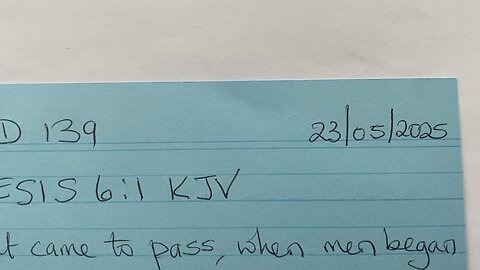 D 139 23/05/2025
ESIS 6:1 KJV
t came to pass, when men began